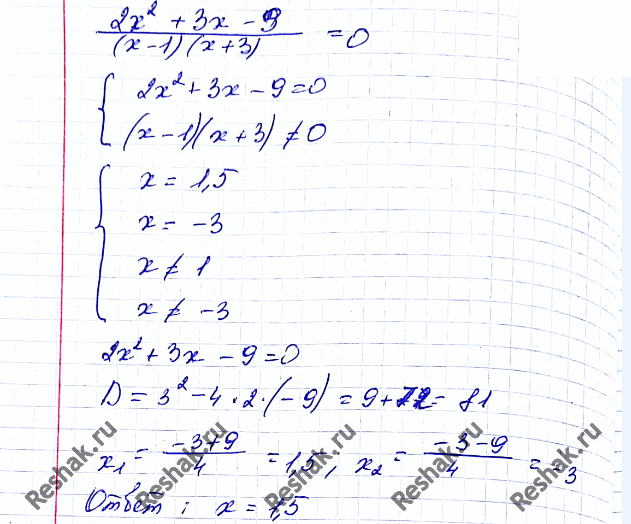 2x² + 3x - 9
(x-1)(x+3) = 0
2x² + 3x - 9 = 0
(x-1)(x+3) ≠ 0
x = 1,5
x = -3
x ≠ 1
x ≠ -3
2x² + 3x - 9 = 0
D = 3² - 4·2·(-9) = 9 + 72 = 81
x₁ = (-3+9)/4 = 1,5, x₂ = (-3-9)/4 = -3
Ответ: x = 1,5
Reshak.ru Reshak.ru Reshak.ru Reshak.ru